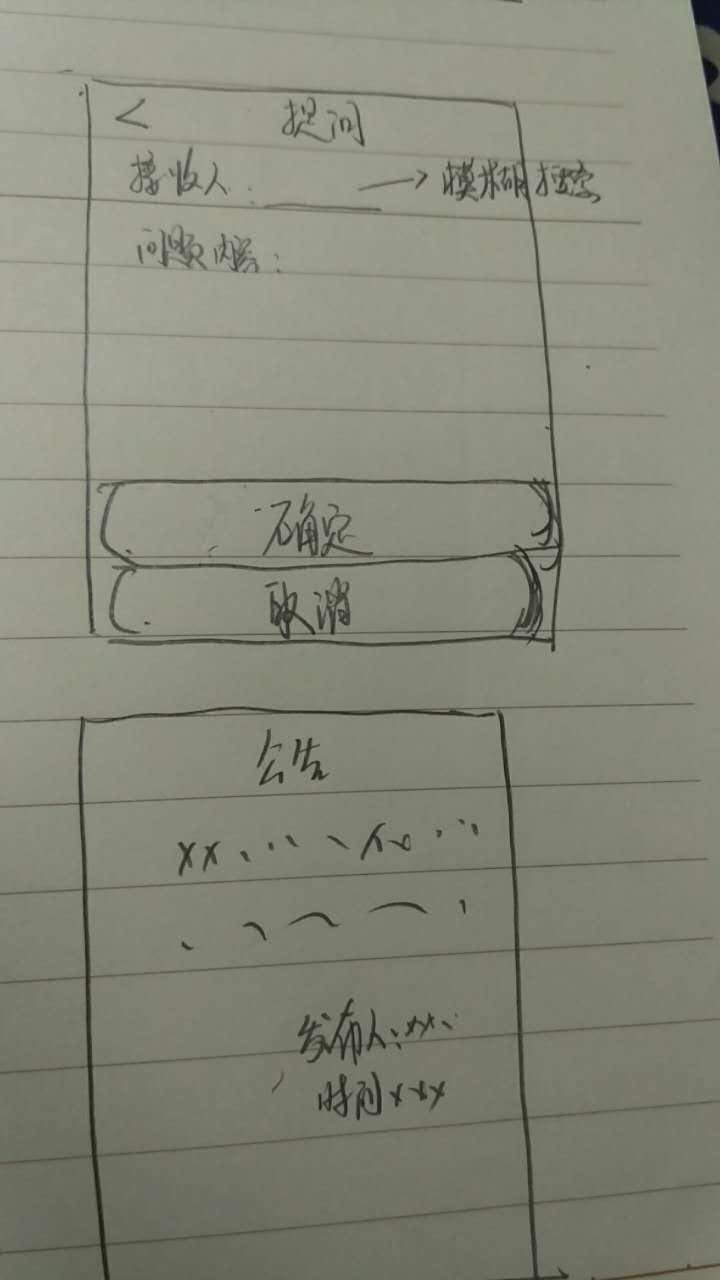 < 提问
接收人: ——→ 模糊搜索
问题内容:
确定
取消
公告
xx
发布人: xx
时间 xxx